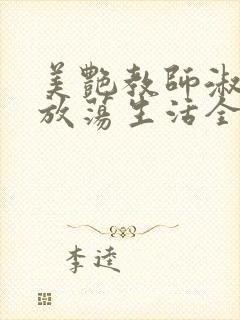 美艷教師淑
放蕩生活全
李逵